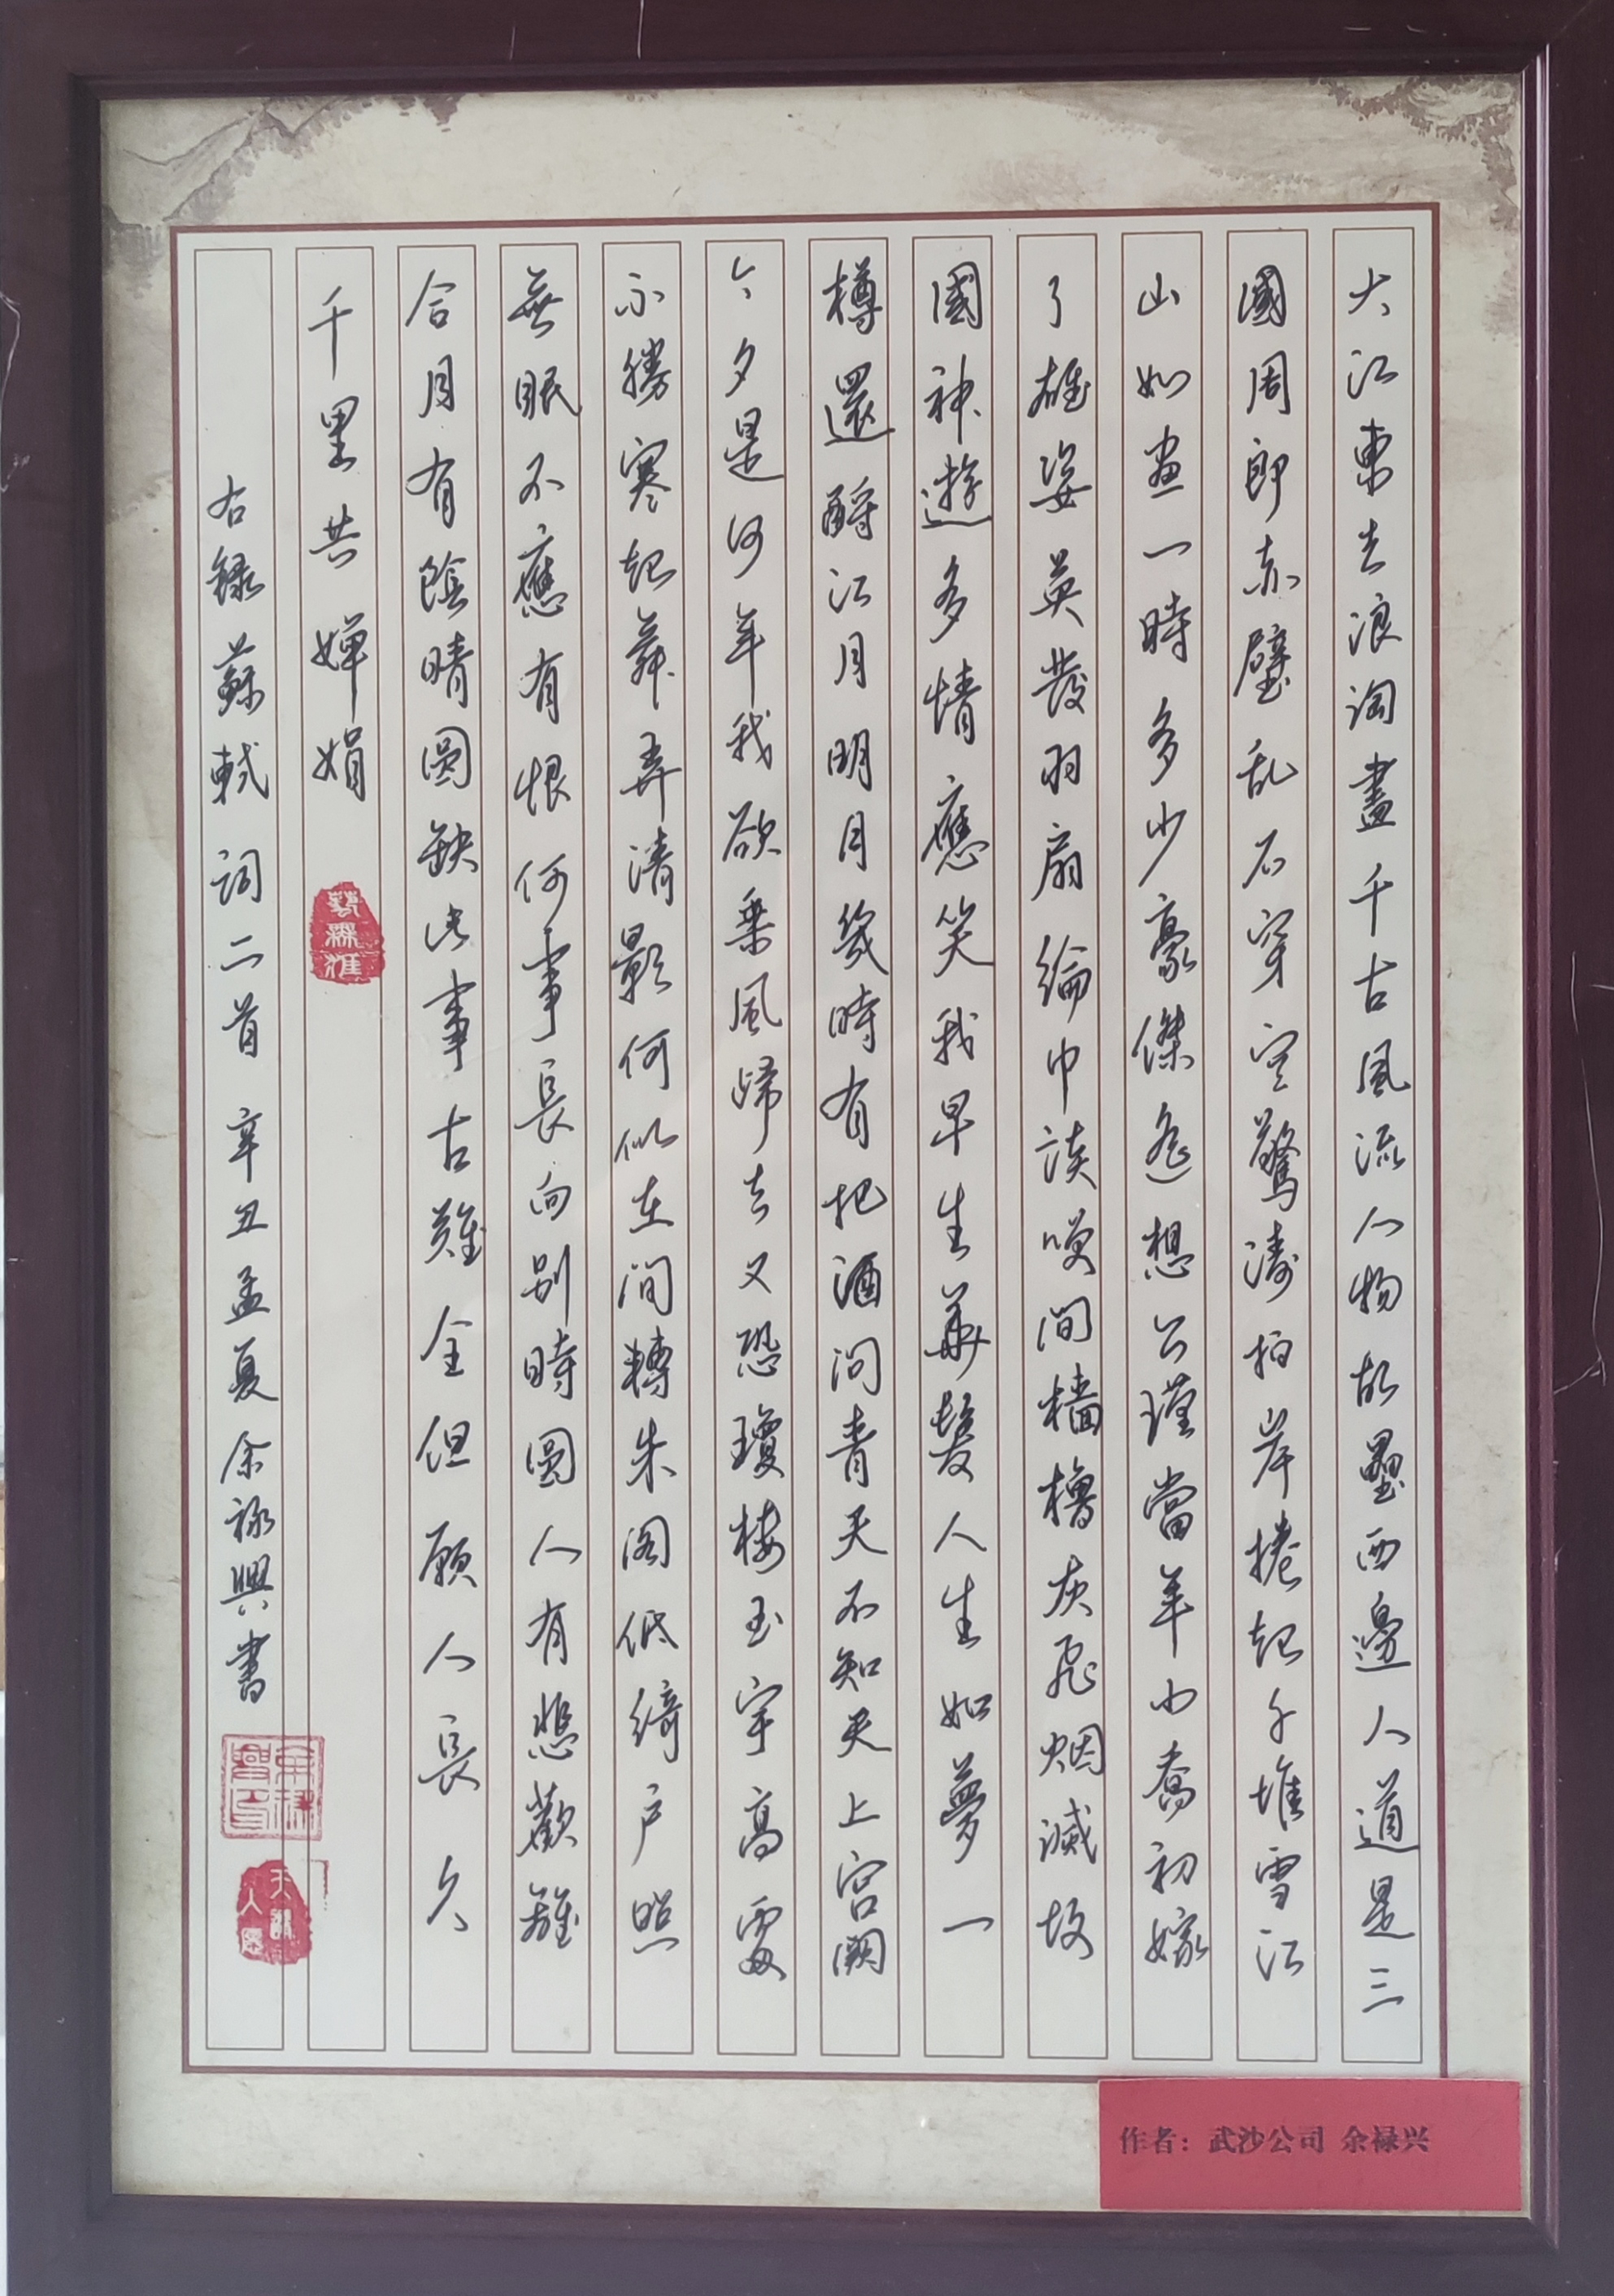 大江東去浪淘盡千古風流人物故壘西邊人道是三
國周郎赤壁乱石穿空驚濤拍岸捲起千堆雪江
山如畫一時多少豪傑遙想公瑾當年小喬初嫁
了雄姿英發羽扇綸巾談咲間檣櫓灰飛烟滅故
國神遊多情應笑我早生華髮人生如夢一
樽還酹江月明月幾時有把酒問青天不知天上宮闕
今夕是何年我欲乘風歸去又恐瓊楼玉宇高處
不勝寒起舞弄清影何似在間轉朱閣低綺户照
無眠不應有恨何事長向別時圓人有悲歡離
合月有陰晴圓缺此事古難全但願人長久
千里共嬋娟
右錄蘇軾詞二首 辛丑孟夏余祿興書
作者：武沙公司 余禄兴